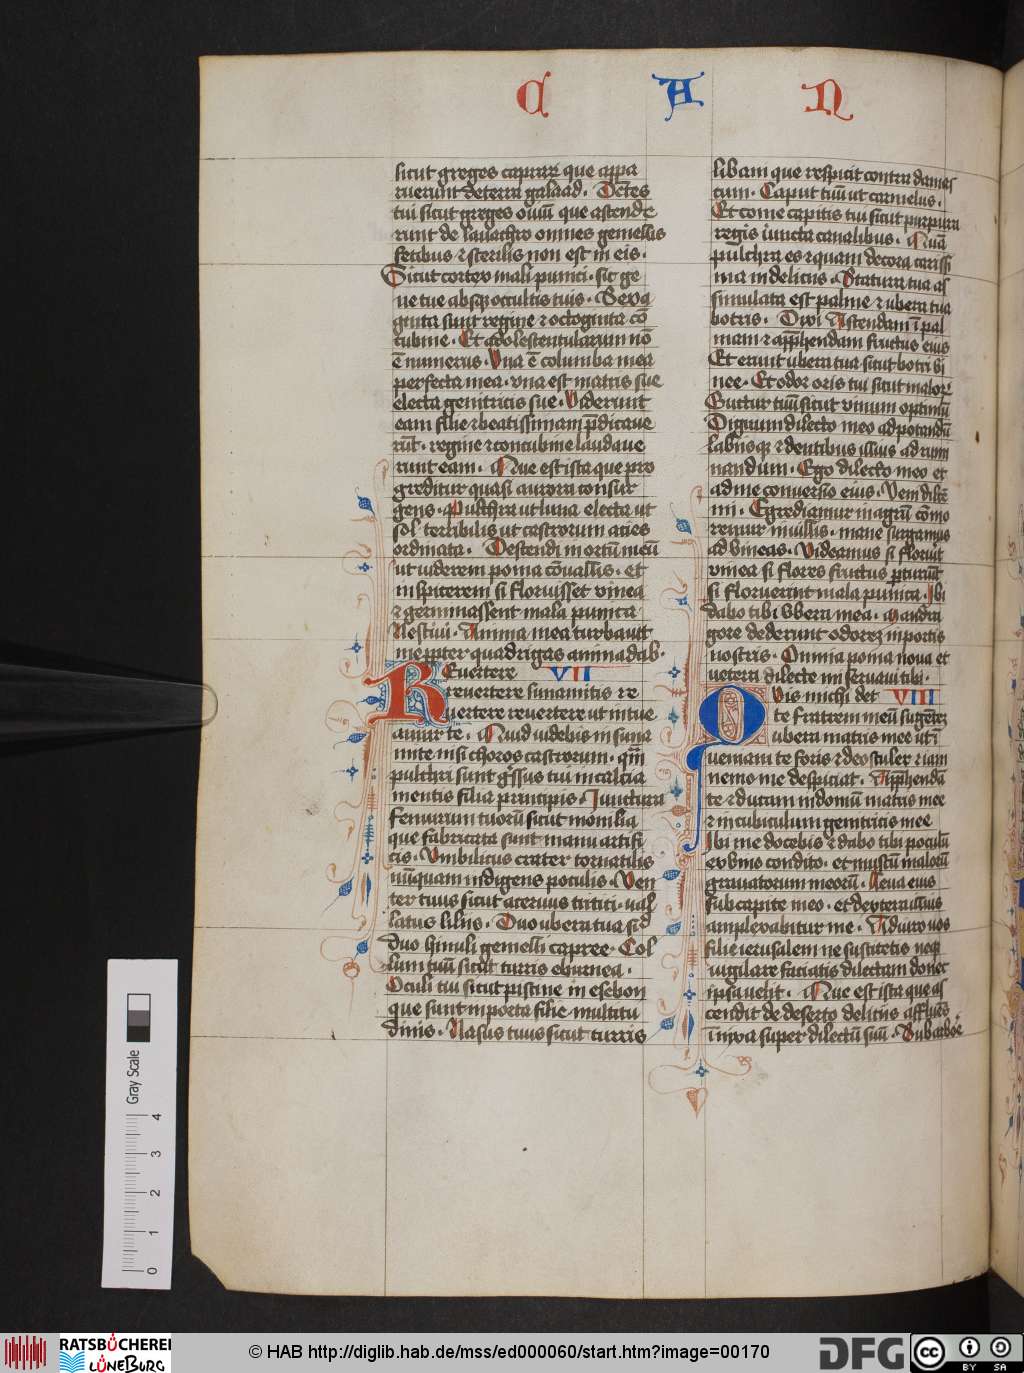 C A N
sicut greges caprarꝝ que appa
ruerunt de terra galaad. Dentes
tui sicut greges ouiū que ascende
runt de lauachro omnes gemellis
fetibus ⁊ sterilis non est in eis.
Sicut cortex mali punici. sic ge
ne tue absqꝫ occultis tuis. Sexa
ginta sunt regine ⁊ octoginta cō
cubine. Et adolescentularum nō
ē numerus. Vna ē columba mea
perfecta mea. vna est matris sue
electa genitricis sue. Viderunt
eam filie ⁊ beatissimam p̄dicaue
rūt. regine ⁊ concubine laudaue
runt eam. Que est ista que pro
greditur quasi aurora consur
gens. Pulchra ut luna electa ut
sol terribilis ut castrorum acies
ordinata. Descendi in ortū meū
ut uiderem poma cōuallis. et
inspicerem si floruisset vinea
⁊ germinassent mala punica
Nesciui. Anima mea turbauit
me ꝓpter quadrigas aminadab.
Reuertere VII
reuertere sunamitis re
uertere reuertere ut intue
amur te. Quid uidebis in suna
mite nisi choros castrorum. qm̄
pulchri sunt gressus tui in calcia
mentis filia principis. Iunctura
femurum tuorū sicut monilia
que fabricata sunt manu artifi
cis. Vmbilicus crater tornatilis
nūquam indigens poculis. Ven
ter tuus sicut aceruus tritici. ual
latus liliis. Duo ubera tua sic̄
duo hinuli gemelli capree. Col
lum tuū sicut turris eburnea.
Oculi tui sicut piscine in esebon
que sunt in porta filie multitu
dinis. Nasus tuus sicut turris
libani que respicit contra damas
cum. Caput tuū ut carmelus.
Et come capitis tui sicut purpura
regis iuncta canalibus. Quā
pulchra es ⁊ quam decora cariss
ma in deliciis. Statura tua as
simulata est palme ⁊ ubera tua
botris. Dixi Ascendam ī pal
mam ⁊ app̄hendam fructus eius
Et erunt ubera tua sicut botri vi
nee. Et odor oris tui sicut malorꝝ
Guttur tuū sicut vinum optimū
Dignum dilecto meo ad potandū
labiisqꝫ ⁊ dentibus illius ad rumi
nandum. Ego dilecto meo et
ad me conuersio eius. Veni dilc̄e
mi. Egrediamur in agrū cōmo
remur in uillis. mane surgamus
ad vineas. Videamus si floruit
vinea si flores fructus ꝑturiūt
si floruerunt mala punica. Ibi
dabo tibi vbera mea. Mandra
gore dederunt odorem in portis
nostris. Omnia poma noua et
uetera dilecte mi seruaui tibi.
Quis michi det VIII
te fratrem meū sugentē
ubera matris mee ut ī
ueniam te foris ⁊ deosculer ⁊ iam
nemo me despiciat. App̄hendā
te ⁊ ducam in domū matris mee
⁊ in cubiculum genitricis mee
Ibi me docebis ⁊ dabo tibi poculū
ex vino condito. et mustū malorū
granatorum meorū. Leua eius
sub capite meo. et dextera illius
amplexabitur me. Adiuro uos
filie ierusalem ne suscitetis neqꝫ
uigilare faciatis dilectam donec
ipsa uelit. Que est ista que as
cendit de deserto deliciis affluēs
innixa super dilectū suū. Sub arboē
Gray Scale
0 1 2 3 4
RATSBÜCHEREI
LÜNEBURG
© HAB http://diglib.hab.de/mss/ed000060/start.htm?image=00170
DFG
cc BY SA